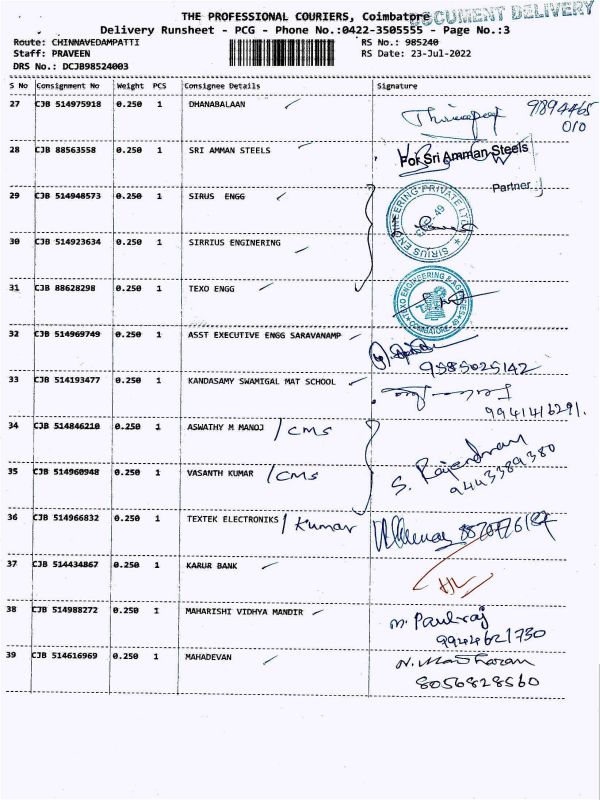 THE PROFESSIONAL COURIERS, Coimbatore
DOCUMENT DELIVERY
Delivery Runsheet - PCG - Phone No.:0422-3505555 - Page No.:3
Route: CHINNAVEDAMPATTI RS No.: 985240
Staff: PRAVEEN RS Date: 23-Jul-2022
DRS No.: DCJB98524003
S No Consignment No Weight PCS Consignee Details Signature
27 CJB 514975918 0.250 1 DHANABALAAN 9894465
010
28 CJB 88563558 0.250 1 SRI AMMAN STEELS For Sri Amman Steels
Partner
29 CJB 514948573 0.250 1 SIRUS ENGG
SIRIUS ENGINEERING PRIVATE LTD
30 CJB 514923634 0.250 1 SIRRIUS ENGINERING
31 CJB 88628298 0.250 1 TEXO ENGG
TEXO ENGINEERING & AGENCIES
COIMBATORE
32 CJB 514969749 0.250 1 ASST EXECUTIVE ENGG SARAVANAMP
9585025142
33 CJB 514193477 0.250 1 KANDASAMY SWAMIGAL MAT SCHOOL
9941416291.
34 CJB 514846210 0.250 1 ASWATHY M MANOJ / CMS
S. Rajendran
9443389380
35 CJB 514960948 0.250 1 VASANTH KUMAR / CMS
36 CJB 514966832 0.250 1 TEXTEK ELECTRONIKS / Kumar
37 CJB 514434867 0.250 1 KARUR BANK
38 CJB 514988272 0.250 1 MAHARISHI VIDHYA MANDIR M. Paulraj
9944621730
39 CJB 514616969 0.250 1 MAHADEVAN
8056828560